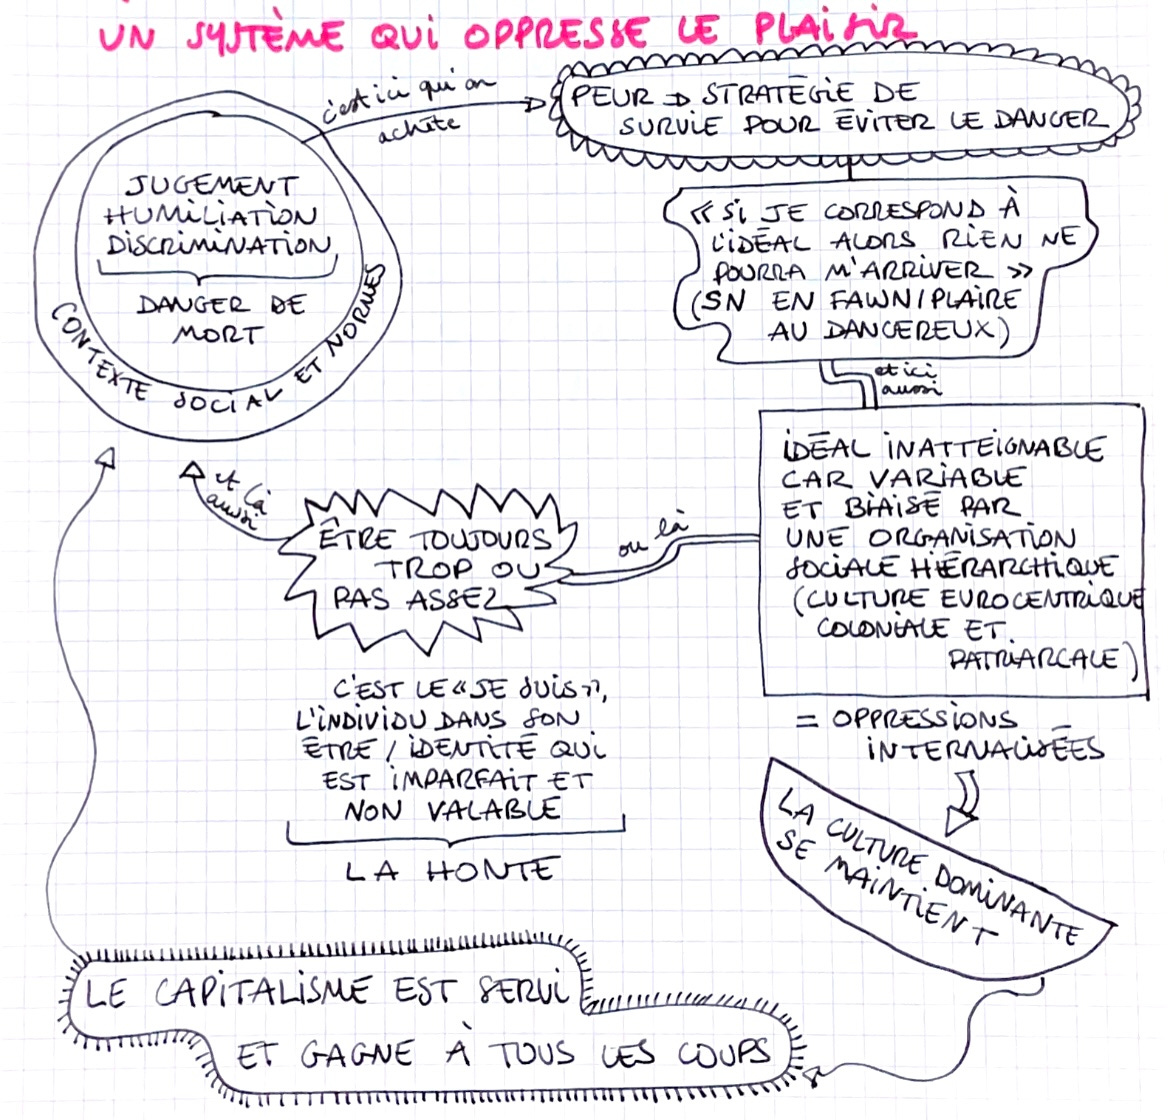 UN SYSTÈME QUI OPPRESSE LE PLAISIR
c'est ici qu'on
achète
PEUR ⇒ STRATÉGIE DE
SURVIE POUR ÉVITER LE DANGER
JUGEMENT
HUMILIATION
DISCRIMINATION
DANGER DE
MORT
CONTEXTE SOCIAL ET NORMES
« SI JE CORRESPOND À
L'IDÉAL ALORS RIEN NE
POURRA M'ARRIVER »
(SN EN FAWN/PLAIRE
AU DANGEREUX)
et ici
aussi
IDÉAL INATTEIGNABLE
CAR VARIABLE
ET BIAISÉ PAR
UNE ORGANISATION
SOCIALE HIÉRARCHIQUE
(CULTURE EUROCENTRIQUE
COLONIALE ET
PATRIARCALE)
ou là
ÊTRE TOUJOURS
TROP OU
PAS ASSEZ
et là
aussi
C'EST LE « JE SUIS »,
L'INDIVIDU DANS SON
ÊTRE / IDENTITÉ QUI
EST IMPARFAIT ET
NON VALABLE
LA HONTE
= OPPRESSIONS
INTERNALISÉES
LA CULTURE DOMINANTE
SE MAINTIENT
LE CAPITALISME EST SERVI
ET GAGNE À TOUS LES COUPS